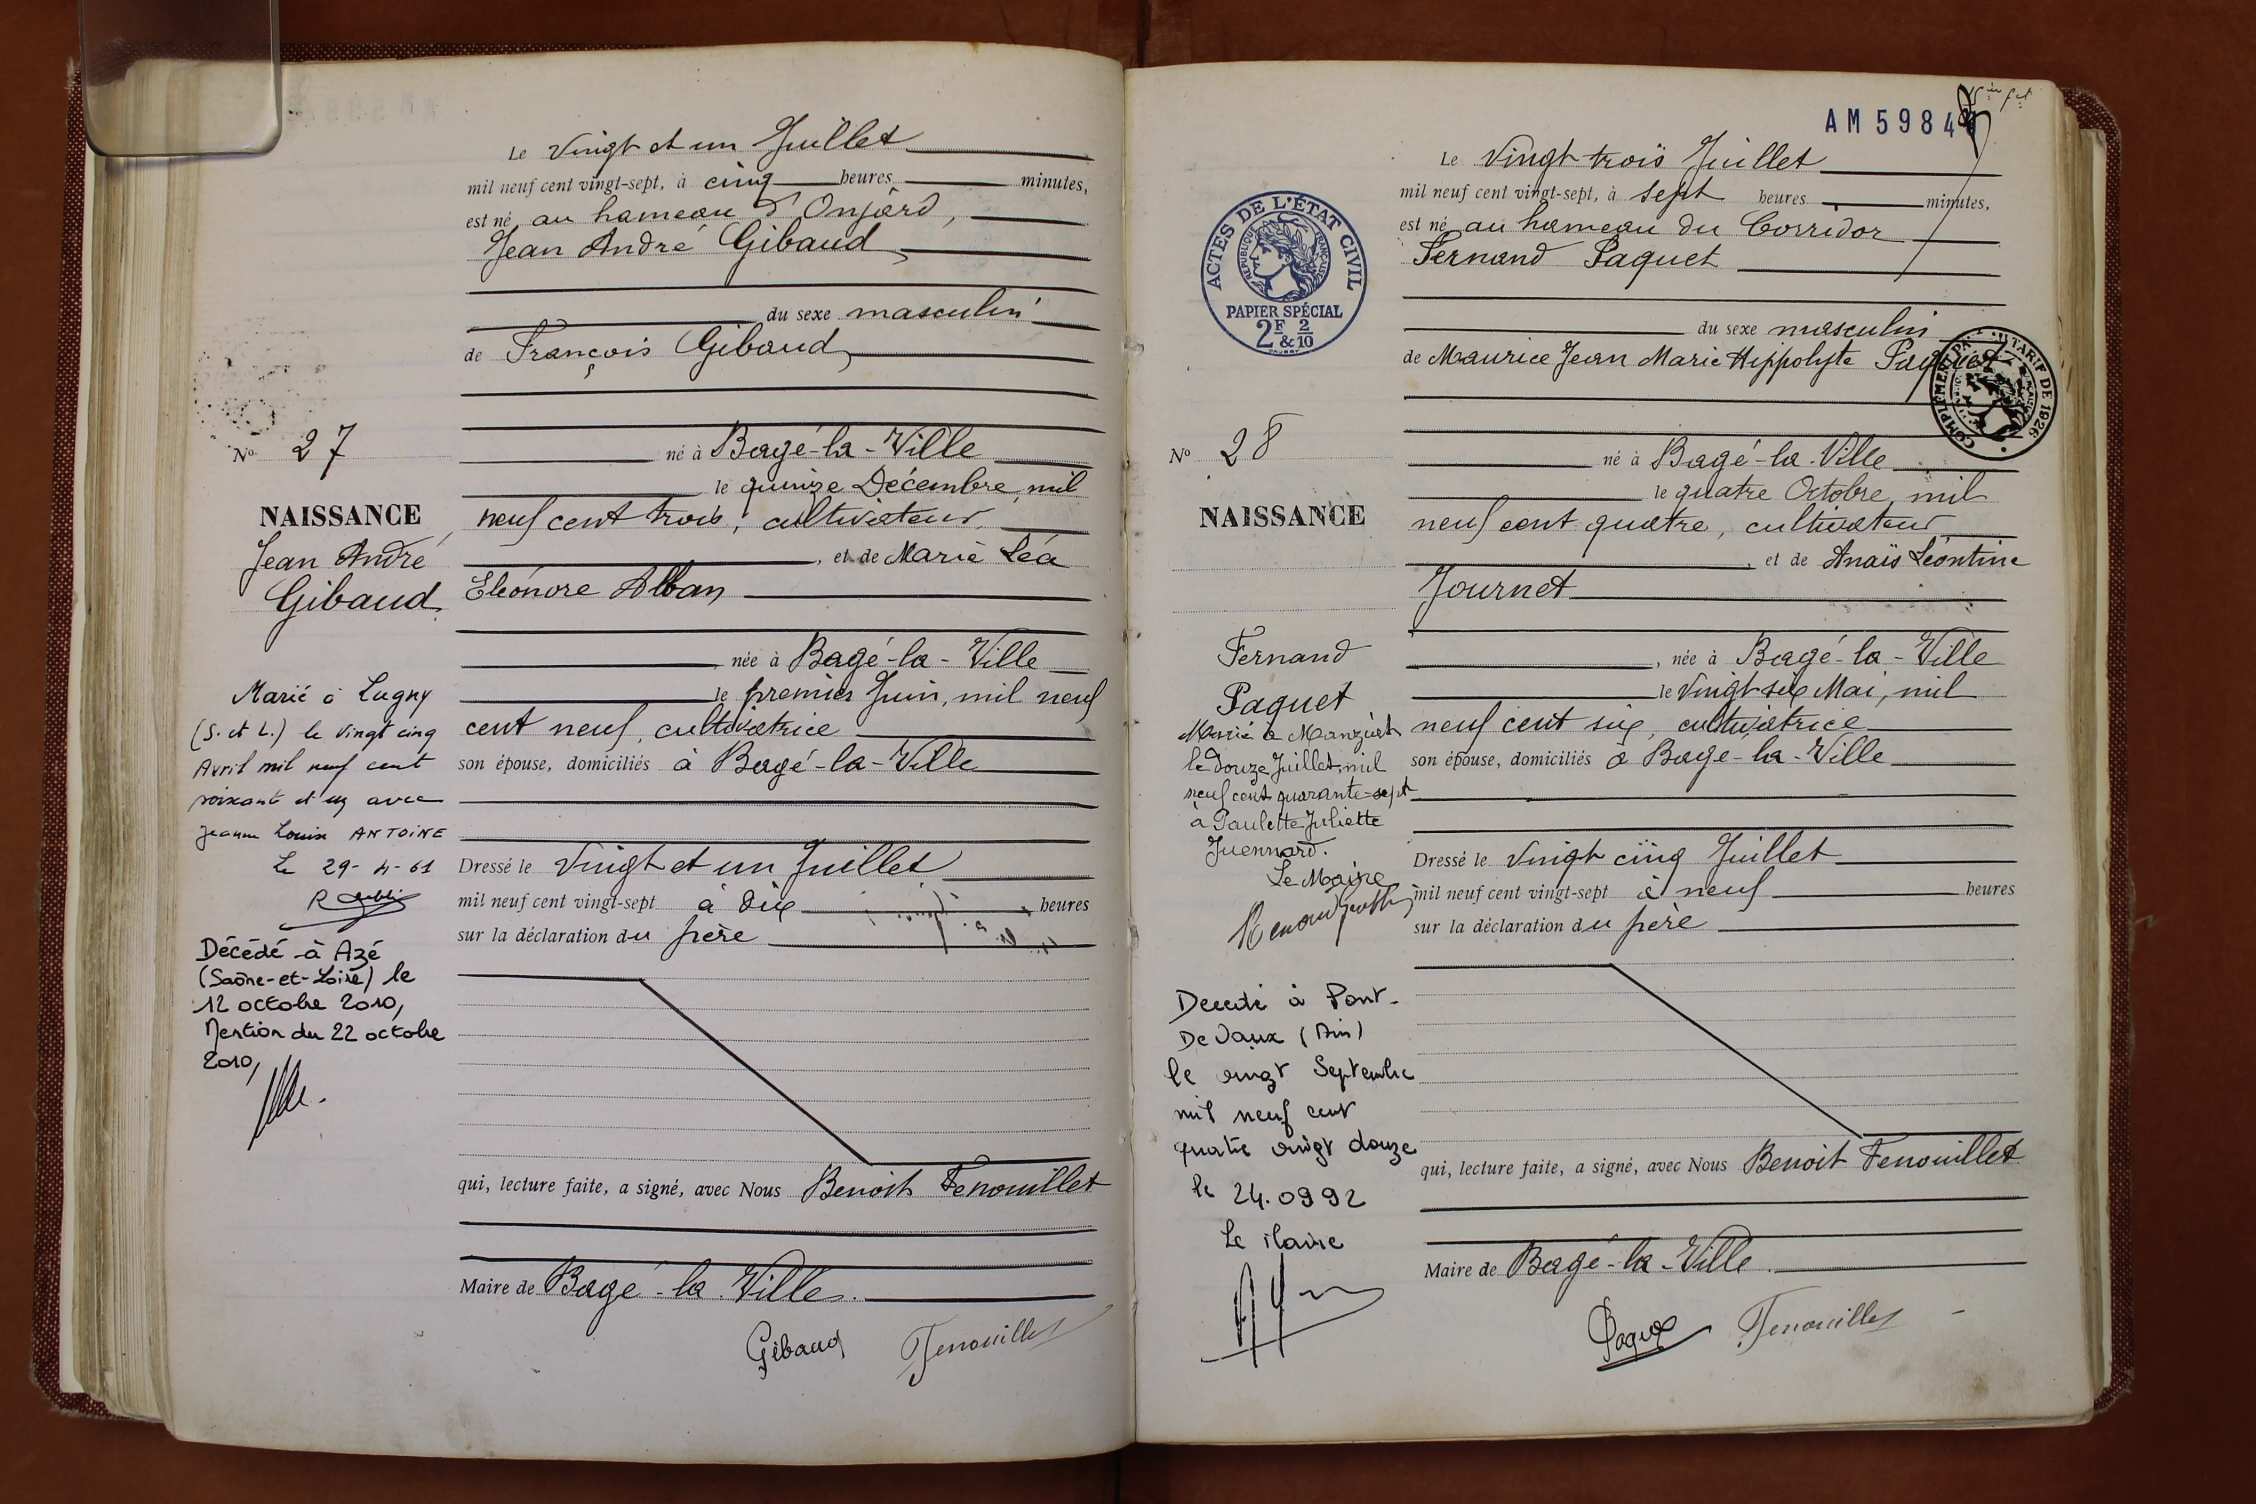 Le Vingt et un Juillet
mil neuf cent vingt-sept, à cinq heures minutes,
est né au hameau d'Onjard,
Jean André Gibaud,
du sexe masculin
de François Gibaud,
né à Bagé-la-Ville
le quinze Décembre mil
neuf cent trois, cultivateur,
, et de Marie Léa
Eléonore Alban
née à Bagé-la-Ville
le premier Juin, mil neuf
cent neuf, cultivatrice
son épouse, domiciliés à Bagé-la-Ville
Dressé le Vingt et un Juillet
mil neuf cent vingt-sept à dix heures
sur la déclaration du père
qui, lecture faite, a signé, avec Nous Benoit Fenouillet
Maire de Bagé-la-Ville.
Gibaud Fenouillet
No 27
NAISSANCE
Jean André
Gibaud
Marié à Lugny
(S. et L.) le vingt cinq
Avril mil neuf cent
soixante et un avec
Jeanne Louise ANTOINE
Le 29-4-61
Décédé à Azé
(Saône-et-Loire) le
12 octobre 2010,
Mention du 22 octobre
2010,
AM 5984
Le Vingt trois Juillet
mil neuf cent vingt-sept, à sept heures minutes,
est né au hameau du Corridor
Fernand Paquet
du sexe masculin
de Maurice Jean Marie Hippolyte Paquet
né à Bagé-la-Ville
le quatre Octobre, mil
neuf cent quatre, cultivateur
, et de Anaïs Léontine
Journet
, née à Bagé-la-Ville
le Vingt six Mai, mil
neuf cent six, cultivatrice
son épouse, domiciliés à Bagé-la-Ville
Dressé le Vingt cinq Juillet
mil neuf cent vingt-sept à neuf heures
sur la déclaration du père
qui, lecture faite, a signé, avec Nous Benoit Fenouillet
Maire de Bagé-la-Ville.
Paquet Fenouillet
ACTES DE L'ÉTAT CIVIL
RÉPUBLIQUE FRANÇAISE
PAPIER SPÉCIAL
2F & 2/10
TARIF DE 1926
No 28
NAISSANCE
Fernand
Paquet
Marié à Manziat
le douze Juillet mil
neuf cent quarante-sept
à Paulette Juliette
Guennard.
Le Maire
Decedé à Pont-
De Vaux (Ain)
le vingt Septembre
mil neuf cent
quatre vingt douze
le 24.0992
Le Maire